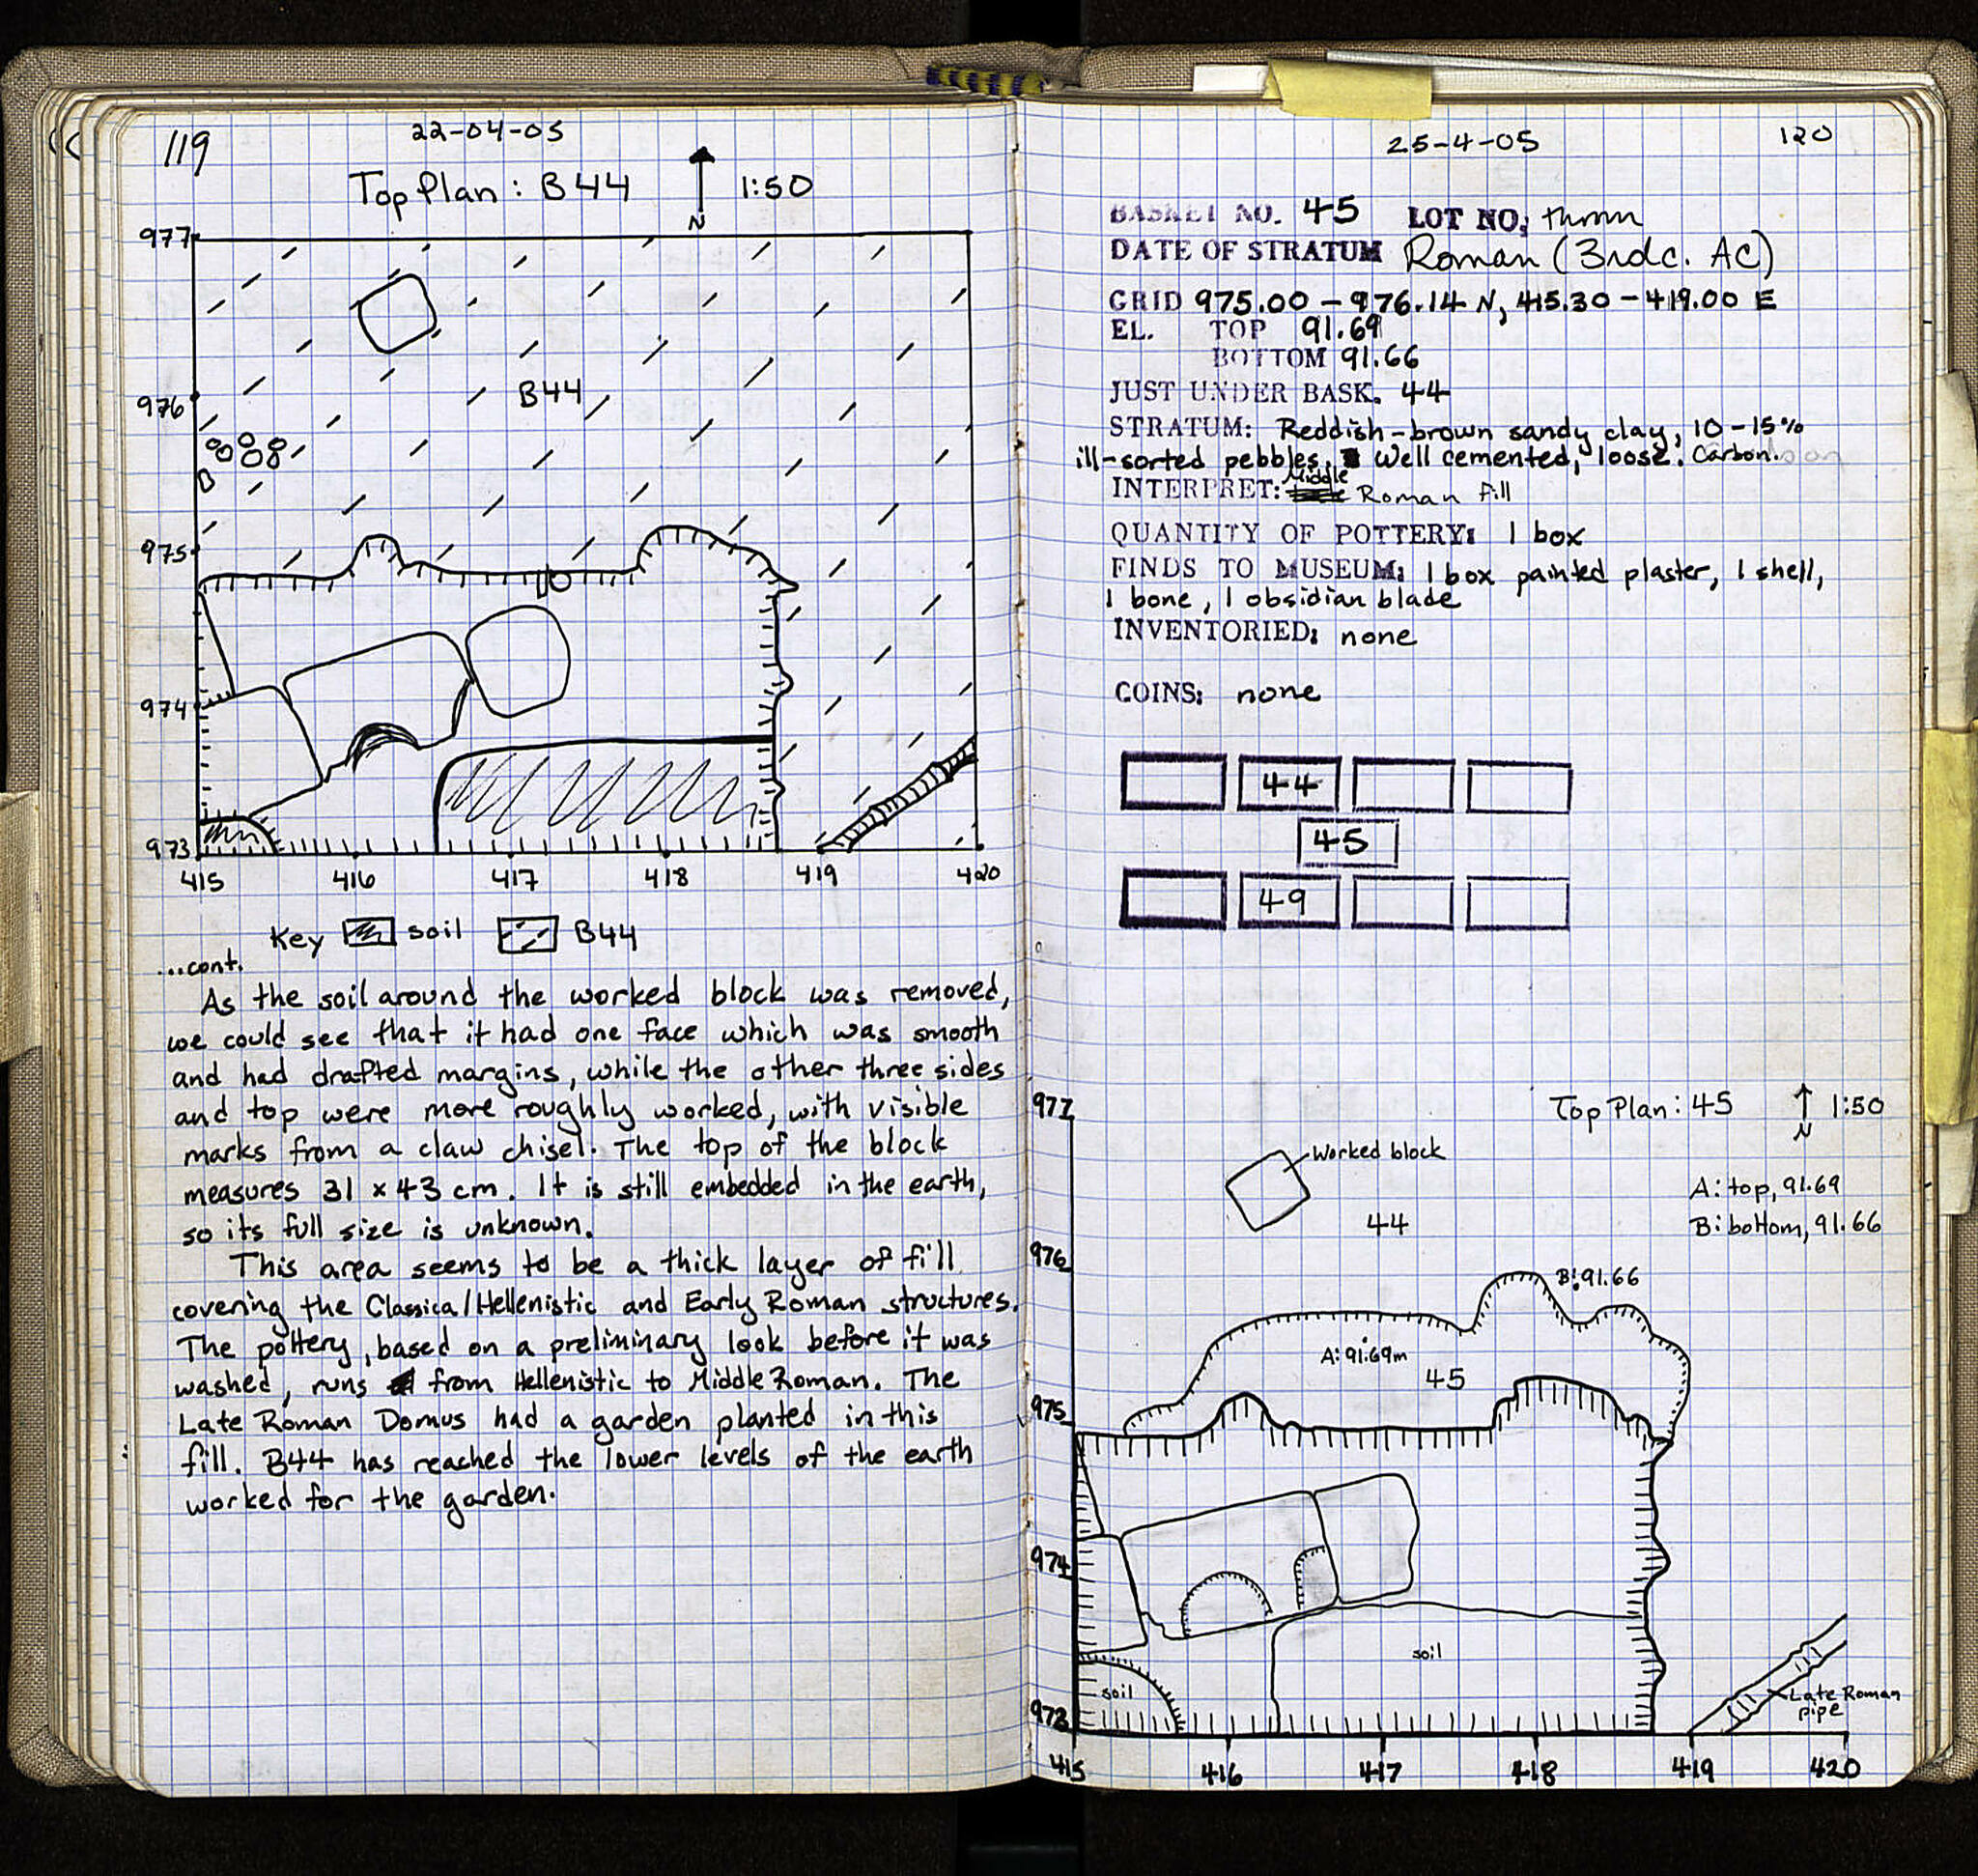 119
22-04-05
Top Plan: B44 N 1:50
977
976
975
974
973
B44
415 416 417 418 419 420
Key soil B44
...cont.
As the soil around the worked block was removed,
we could see that it had one face which was smooth
and had drafted margins, while the other three sides
and top were more roughly worked, with visible
marks from a claw chisel. The top of the block
measures 31 x 43 cm. It is still embedded in the earth,
so its full size is unknown.
This area seems to be a thick layer of fill
covering the Classical/Hellenistic and Early Roman structures.
The pottery, based on a preliminary look before it was
washed, runs from Hellenistic to Middle Roman. The
Late Roman Domus had a garden planted in this
fill. B44 has reached the lower levels of the earth
worked for the garden.
25-4-05
120
BASKET NO. 45 LOT NO:
DATE OF STRATUM Roman (3rd c. AC)
GRID 975.00 - 976.14 N, 415.30 - 419.00 E
EL. TOP 91.69
BOTTOM 91.66
JUST UNDER BASK. 44
STRATUM: Reddish-brown sandy clay, 10-15%
ill-sorted pebbles, Well cemented, loose. Carbon.
INTERPRET: Middle Roman fill
QUANTITY OF POTTERY: 1 box
FINDS TO MUSEUM: 1 box painted plaster, 1 shell,
1 bone, 1 obsidian blade
INVENTORIED: none
COINS: none
44
45
49
Top Plan: 45 N 1:50
Worked block
A: top, 91.69
B: bottom, 91.66
44
B: 91.66
A: 91.69m
45
soil
soil
Late Roman
pipe
977
976
975
974
973
415 416 417 418 419 420